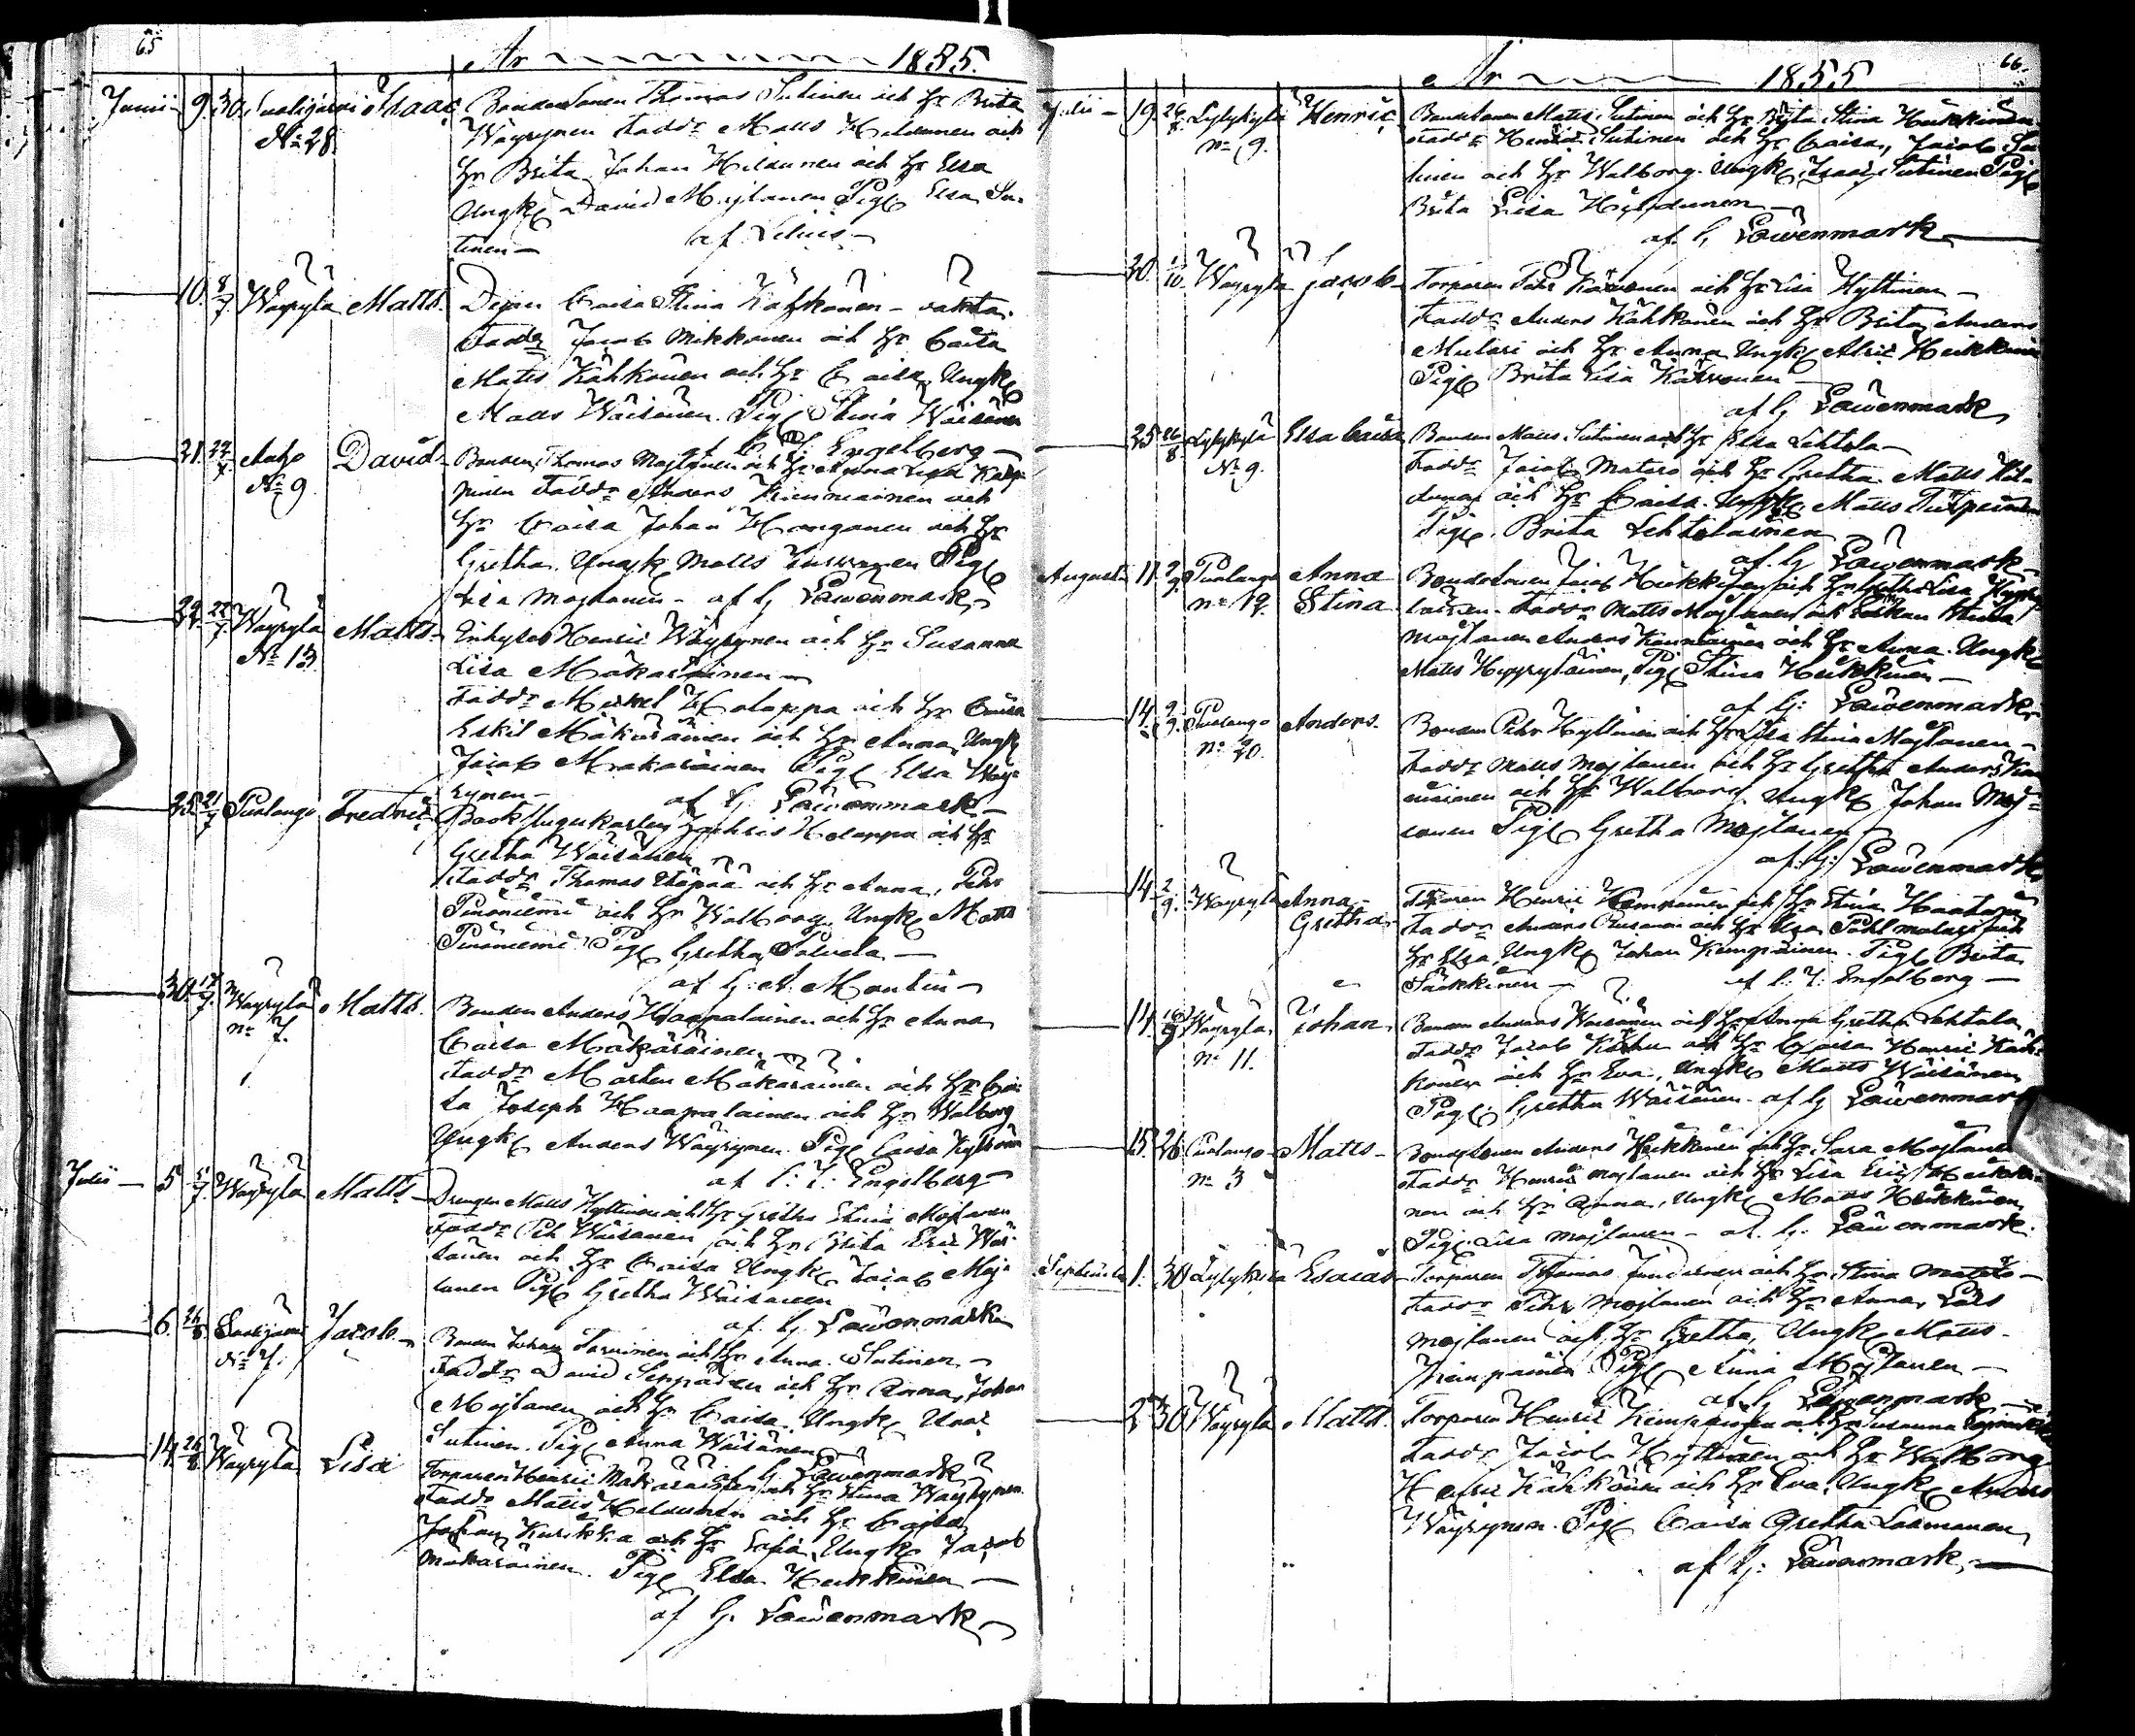 65
År 1855.
Junii 9. 30. Suolijärvi Isaac Bondesonen Thomas Sutinen och Hu Brita
No 28 Wäyrynen Faddr Matts Heldunen och
Hu Brita, Johan Hildunen och Hu Elsa
Ungk David Mojlanen Pig Elsa Su-
tinen — af Lilius —
10. 8/7 Wäyrylä Matts. Pigan Caisa Stina Kähkönen — oäkta.
Faddr Jacob Mikkonen och Hu Caisa
Matts Kähkönen och Hu Caisa, Ungk
Matts Wäisänen. Pig Stina Wäisänen
af Engelberg —
21. 22/7 Aatjo David Bonden Thomas Mojlanen och Hu Anna Lisa
No 9 Faddr Anders Kinnuinen och
Hu Caisa Johan Hänganen och Hu
Gretha. Ungk Matts Pig
Lisa Mojlanen — af G Låwenmark
22/7 Wäyrylä Matts. Inhyses Henric Wäyrynen och Hu Susanna
No 13 Lisa Mäkäräinen —
Faddr Mickel Holappa och Hu Caisa
Eskil Mäkäräinen och Hu Anna, Ungk
Jacob Mäkäräinen Pig Elsa Wäy-
rynen — af G. Låwenmark —
25. 21/7 Puolango Fredric Zachris Holappa och Hu
Gretha Wäisänen
Faddr Thomas och Hu Anna, Pehr
Puroniemi och Hu Walborg. Ungk Matts
Puroniemi Pig Gretha Palvela —
af G. A. Montin —
30. 17/7. Wäyrylä Matts. Bonden Anders Haapalainen och Hu Anna
no 7. Caisa Mäkäräinen —
Faddr Mårten Mäkäräinen och Hu Cai-
sa Joseph Haapalainen och Hu Walborg
Ungk Anders Wäyrynen. Pig Caisa
af C: J: Engelberg —
Julii — 5 5/7. Wäyrylä Matts — Drengen Matts Hyttinen och Hu Gretha Stina Mojlanen
Faddr Pehr Wäisänen och Hu Brita Eric Wäi-
sänen och Hu Caisa Ungk Jacob Moj-
lanen Pig Gretha Wäisänen
af. G. Låwenmark
6. 26/8 Suolijärvi Jacob. Bonden Johan Tervinen och Hu Anna Sutinen —
No 7. Faddr David Seppänen och Hu Anna, Johan
Mojlanen och Hu Caisa. Ungk
Sutinen. Pig Anna Wäisänen
af G Låwenmark
14. 26/8. Wäyrylä Lisa Torparen Henric Mäkäräinen och Hu Stina Wäyrynen.
Faddr Matts Heldunen och Hu Caisa
Johan Kurikka och Hu Sofia, Ungk Jacob
Mäkäräinen. Pig Elsa Heikkinen —
af G. Låwenmark
66.
År 1855
Julii — 19. 26/8 Lylykylä Henric Bondesonen Matts Sutinen och Hu Brita Stina Heikkinen
no 9. Faddr Henric Sutinen och Hu Caisa, Jacob Su-
tinen och Hu Walborg. Ungk Isaac Sutinen Pig
Brita Lisa Hyldunen —
af. G Låwenmark —
20. 1/10 Wäyrylä Jacob Torparen Pehr Karvonen och Hu Lisa Hyttinen —
Faddr Anders Kähkönen och Hu Brita, Anders
Mulari och Hu Anna Ungk Alric Heikkinen
Pig Brita Lisa Karvonen —
af G Låwenmark
25 26/8 Lylykylä Elsa Caisa Bonden Matts Sutinen och Hu Elsa Lehtola —
No 9. Faddr Jacob Matero och Hu Gretha Matts Hil-
dunen och Hu Caisa. Ungk. Matts
Pig. Brita Lehtolainen
af. G Låwenmark —
Augusti 11. 2/9. Puolango Anna Bondesonen Jacob Heikkinen och Hu Gretha Lisa Hypry-
no 19. Stina läinen. Faddr Matts Mojlanen och Enkan Stina
Mojlanen Anders Kinnuinen och Hu Anna. Ungk
Matts Hyprylainen, Pig Stina Heikkinen —
af G: Låwenmark
14. 2/9. Puolango Anders. Bonden Pehr Hyttinen och Hu Lisa Stina Mojlanen —
no 20. Faddr Matts Mojlanen och Hu Gretha Anders Kin-
nuinen och Hu Walborg. Ungk Johan Moj-
lanen Pig Gretha Mojlanen —
af. G: Låwenmark
14. 2/9. Wäyrylä Anna Torparen Henric Kemppainen och Hu Stina Haataja
Gretha Faddr Anders och Hu Elsa Påhl Mulari och
Hu Elsa, Ungk Johan Kempainen. Pig Brita
Säkkinen — af C: J: Engelberg —
14. 16/9 Wäyrylä Johan. Bonden Anders Wäisänen och Hu Anna Gretha Lehtola
no 11. Faddr Jacob Karhu och Hu Caisa Henric Käh-
könen och Hu Eva, Ungk Matts Wäisänen
Pig. Gretha Wäisänen — af G Låwenmark
15. 26 Puolango Matts — Bondesonen Anders Heikkinen och Hu Sara Mojlanen
no 3 Faddr Henric Mojlanen och Hu Lisa Eric Heikki-
nen och Hu Anna, Ungk Matts Heikkinen
Pig. Lisa Mojlanen — af. G. Låwenmark.
September 1. 30 Lylykylä Esaias — Torparen Thomas Jundinen och Hu Stina Matero —
Faddr Pehr Mojlanen och Hu Anna, Lars
Mojlanen och Hu Gretha, Ungk Matts
Kempainen Pig Anna Mojlanen —
af G Låwenmark —
2 30 Wäyrylä Matts. Torparen Henric Kemppainen och Hu Susanna
Faddr Jacob Hyttinen och Hu Walborg
Henric Kähkönen och Hu Eva. Ungk Anders
Wäyrynen. Pig Caisa Gretha Laamanen
af G: Låwenmark, —